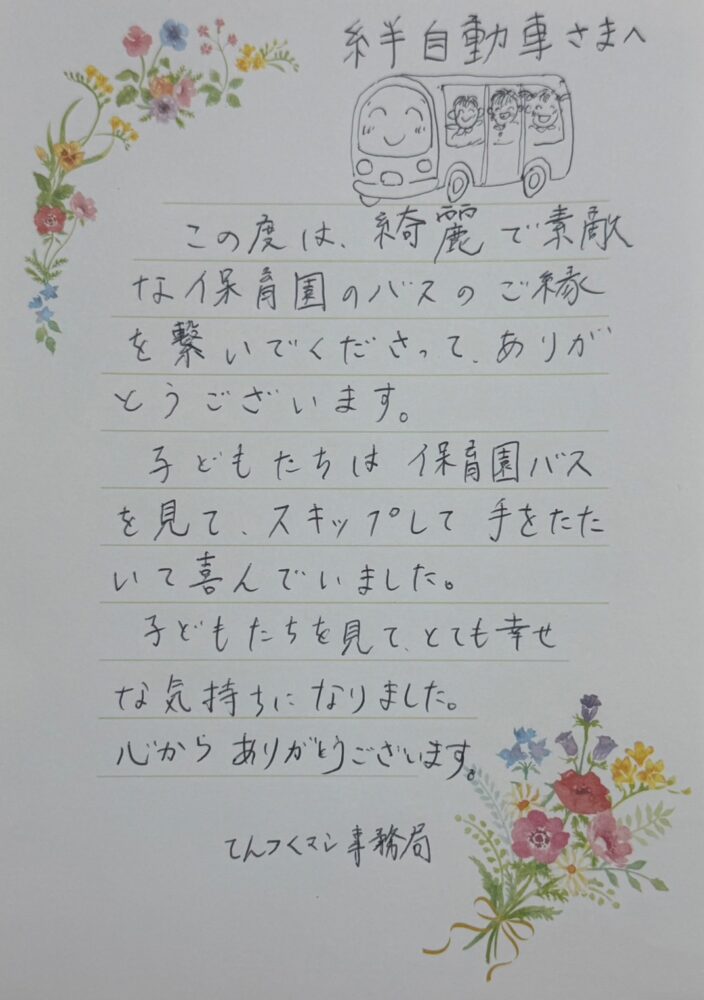 絆自動車さまへ
この度は、綺麗で素敵
な保育園のバスのご縁
を繋いでくださって、ありが
とうございます。
子どもたちは保育園バス
を見て、スキップして手をたた
いて喜んでいました。
子どもたちを見て、とても幸せ
な気持ちになりました。
心からありがとうございます。
てんつくマン事務局